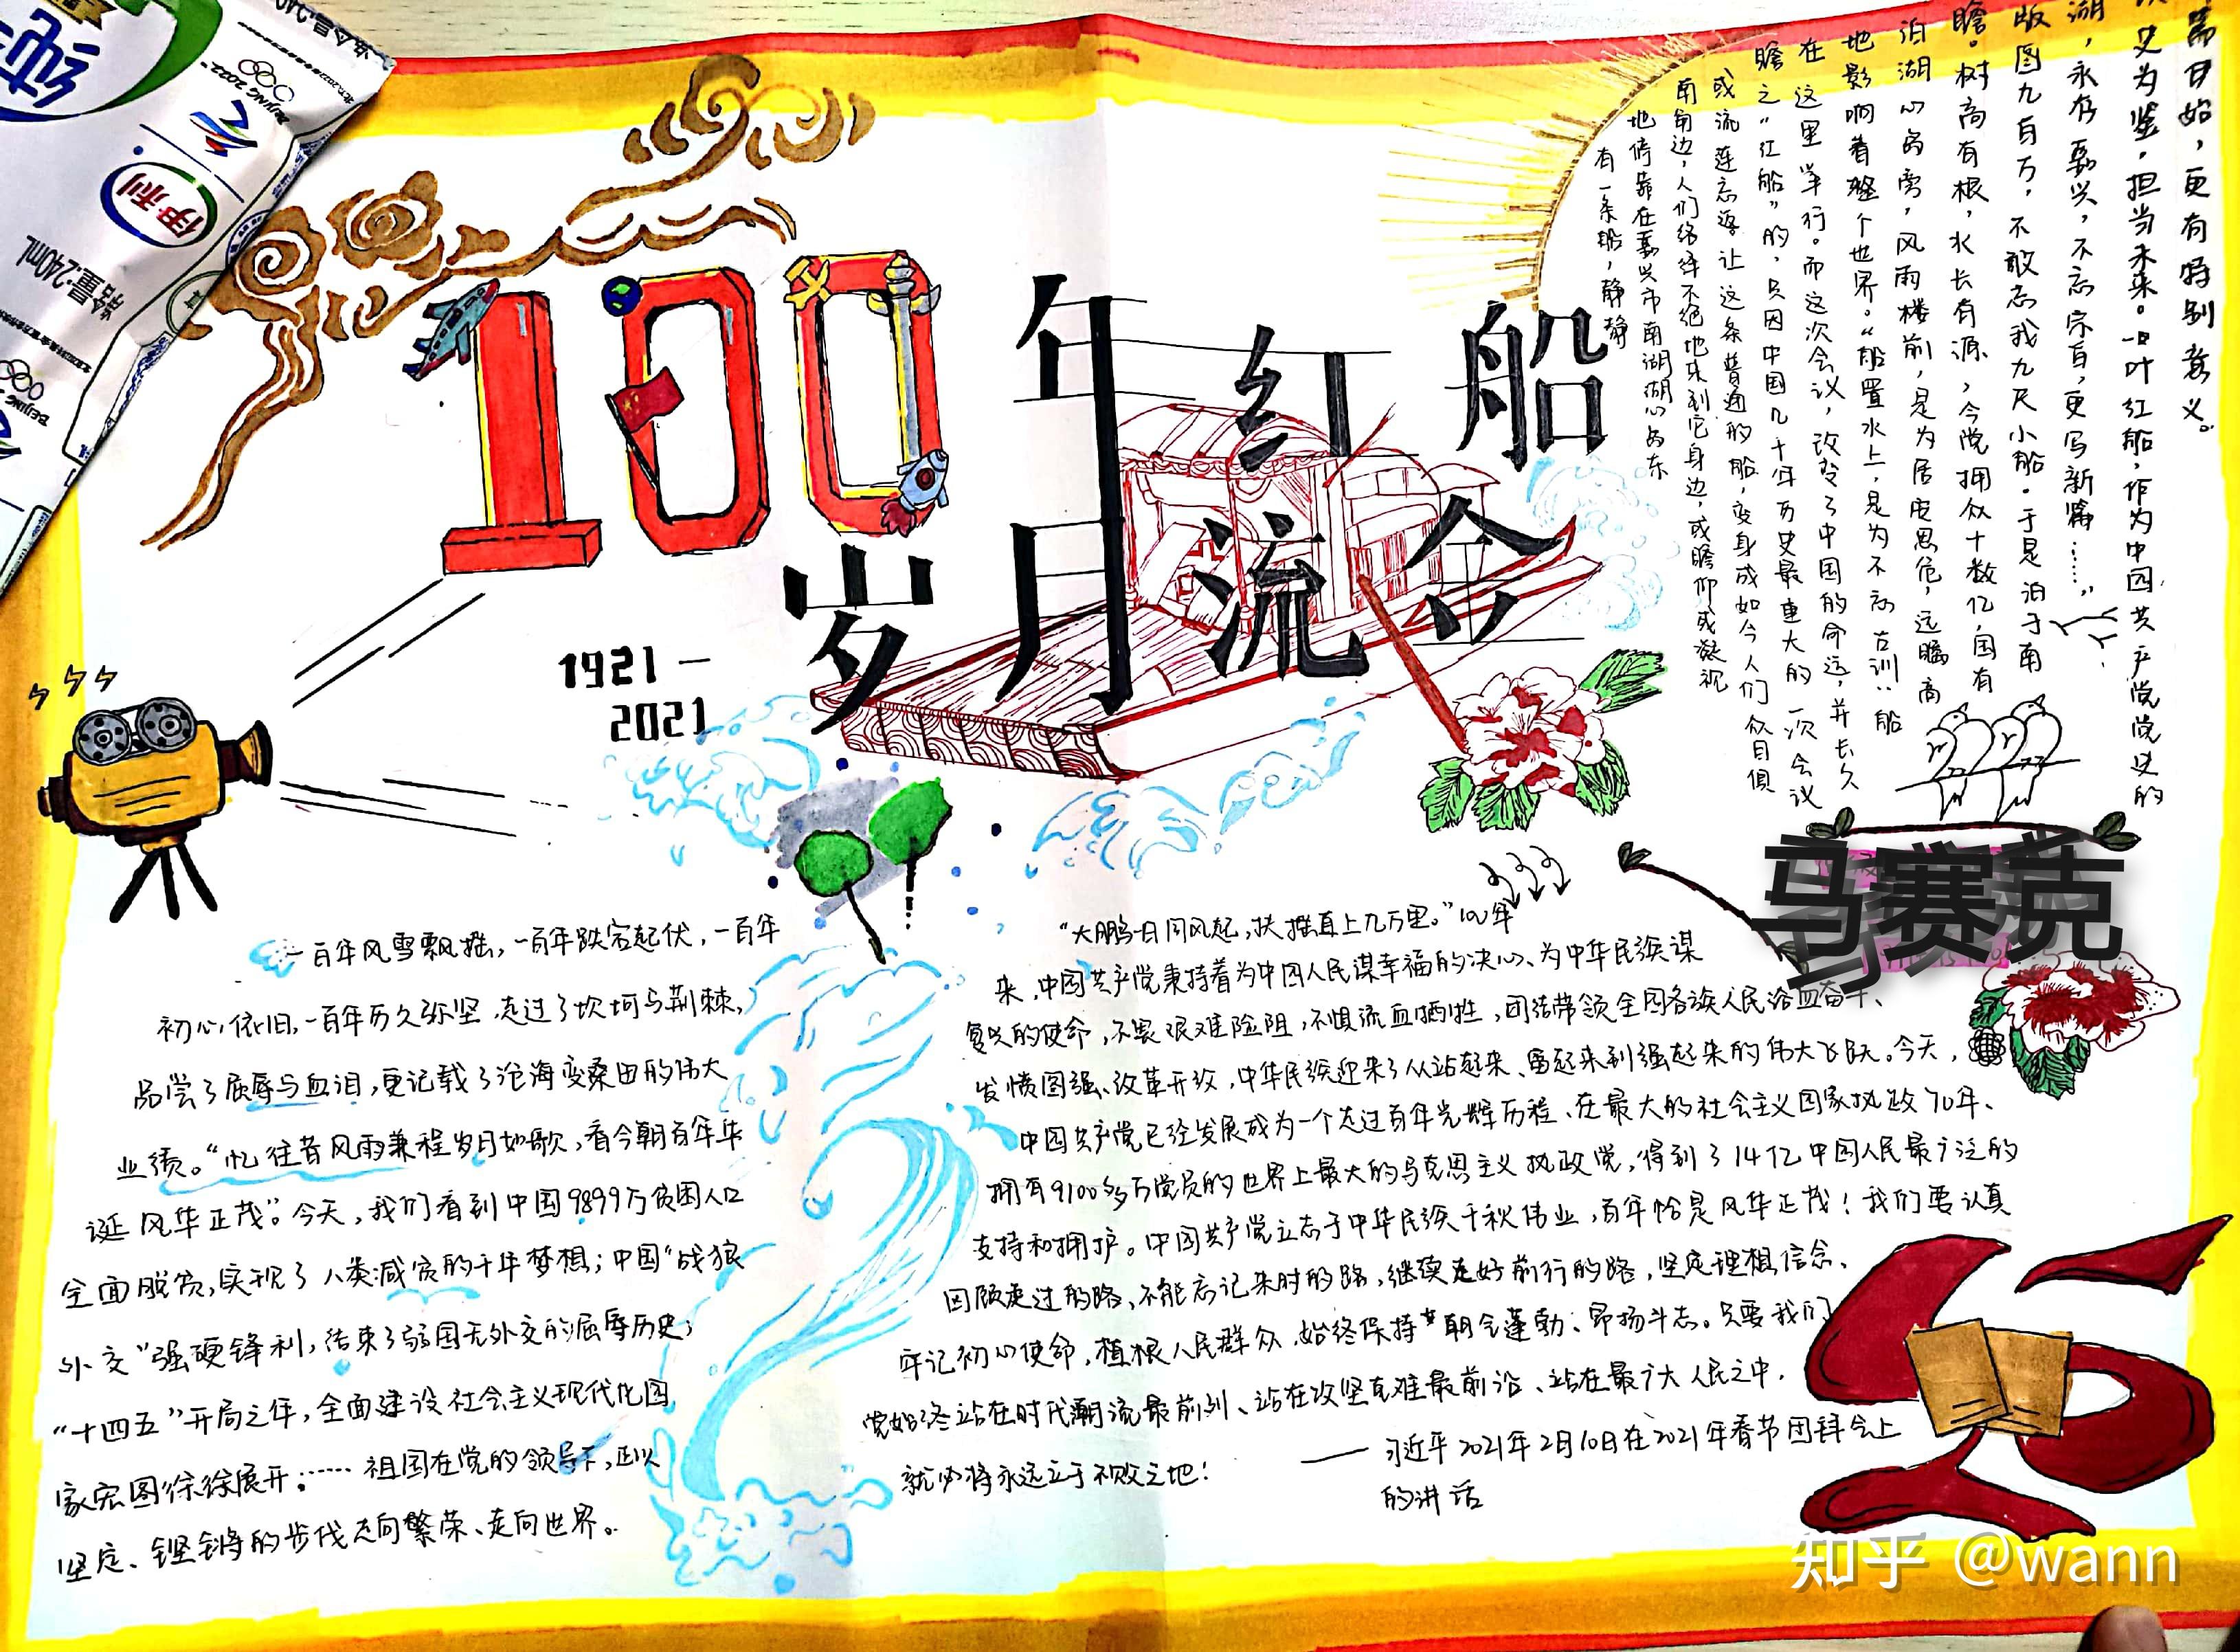 100年红船
岁月流金
1921—
2021
纯
伊利
BEIJING 2022
净含量:240mL
BEIJING
有一条船，静静
地停靠在嘉兴市南湖湖心岛东
南角边，人们络绎不绝地来到它身边，或瞻仰或凝视
或流连忘返。让这条普通的船，变身成如今人们众目俱
瞻之“红船”的，只因中国几十年历史最重大的一次会议
在这里举行。而这次会议，改变了中国的命运，并长久
地影响着整个世界。“船置水上，是为不忘古训：船
泊湖心岛旁，风雨楼前，是为居安思危，远瞩高
瞻。树高有根，水长有源，今党拥众十数亿，国有
版图九百万，不敢忘我九尺小船。于是泊于南
湖，永存嘉兴，不忘宗旨，更写新篇……”
史为鉴，担当未来。一叶红船，作为中国共产党党史的
篇开始，更有特别意义。
马赛克
一百年风雪飘摇，一百年跌宕起伏，一百年
初心依旧，一百年历久弥坚，走过了坎坷与荆棘，
品尝了屈辱与血泪，更记载了沧海变桑田的伟大
业绩。“忆往昔风雨兼程岁月如歌，看今朝百年华
诞风华正茂”。今天，我们看到中国9899万贫困人口
全面脱贫，实现了人类减贫的千年梦想；中国“战狼
外交”强硬锋利，结束了弱国无外交的屈辱历史；
“十四五”开局之年，全面建设社会主义现代化国
家宏图徐徐展开；……祖国在党的领导下，正以
坚定、铿锵的步伐走向繁荣、走向世界。
“大鹏一日同风起，扶摇直上九万里。”100年
来，中国共产党秉持着为中国人民谋幸福的决心、为中华民族谋
复兴的使命，不畏艰难险阻，不惧流血牺牲，团结带领全国各族人民浴血奋斗、
发愤图强、改革开放，中华民族迎来了从站起来、富起来到强起来的伟大飞跃。今天，
中国共产党已经发展成为一个走过百年光辉历程、在最大的社会主义国家执政70年、
拥有9100多万党员的世界上最大的马克思主义执政党，得到了14亿中国人民最广泛的
支持和拥护。中国共产党立志于中华民族千秋伟业，百年恰是风华正茂！我们要认真
回顾走过的路、不能忘记来时的路，继续走好前行的路，坚定理想信念、
牢记初心使命，植根人民群众，始终保持朝气蓬勃、昂扬斗志。只要我们
党始终站在时代潮流最前列、站在攻坚克难最前沿、站在最广大人民之中，
就必将永远立于不败之地！
——习近平2021年2月10日在2021年春节团拜会上
的讲话
知乎 @wann